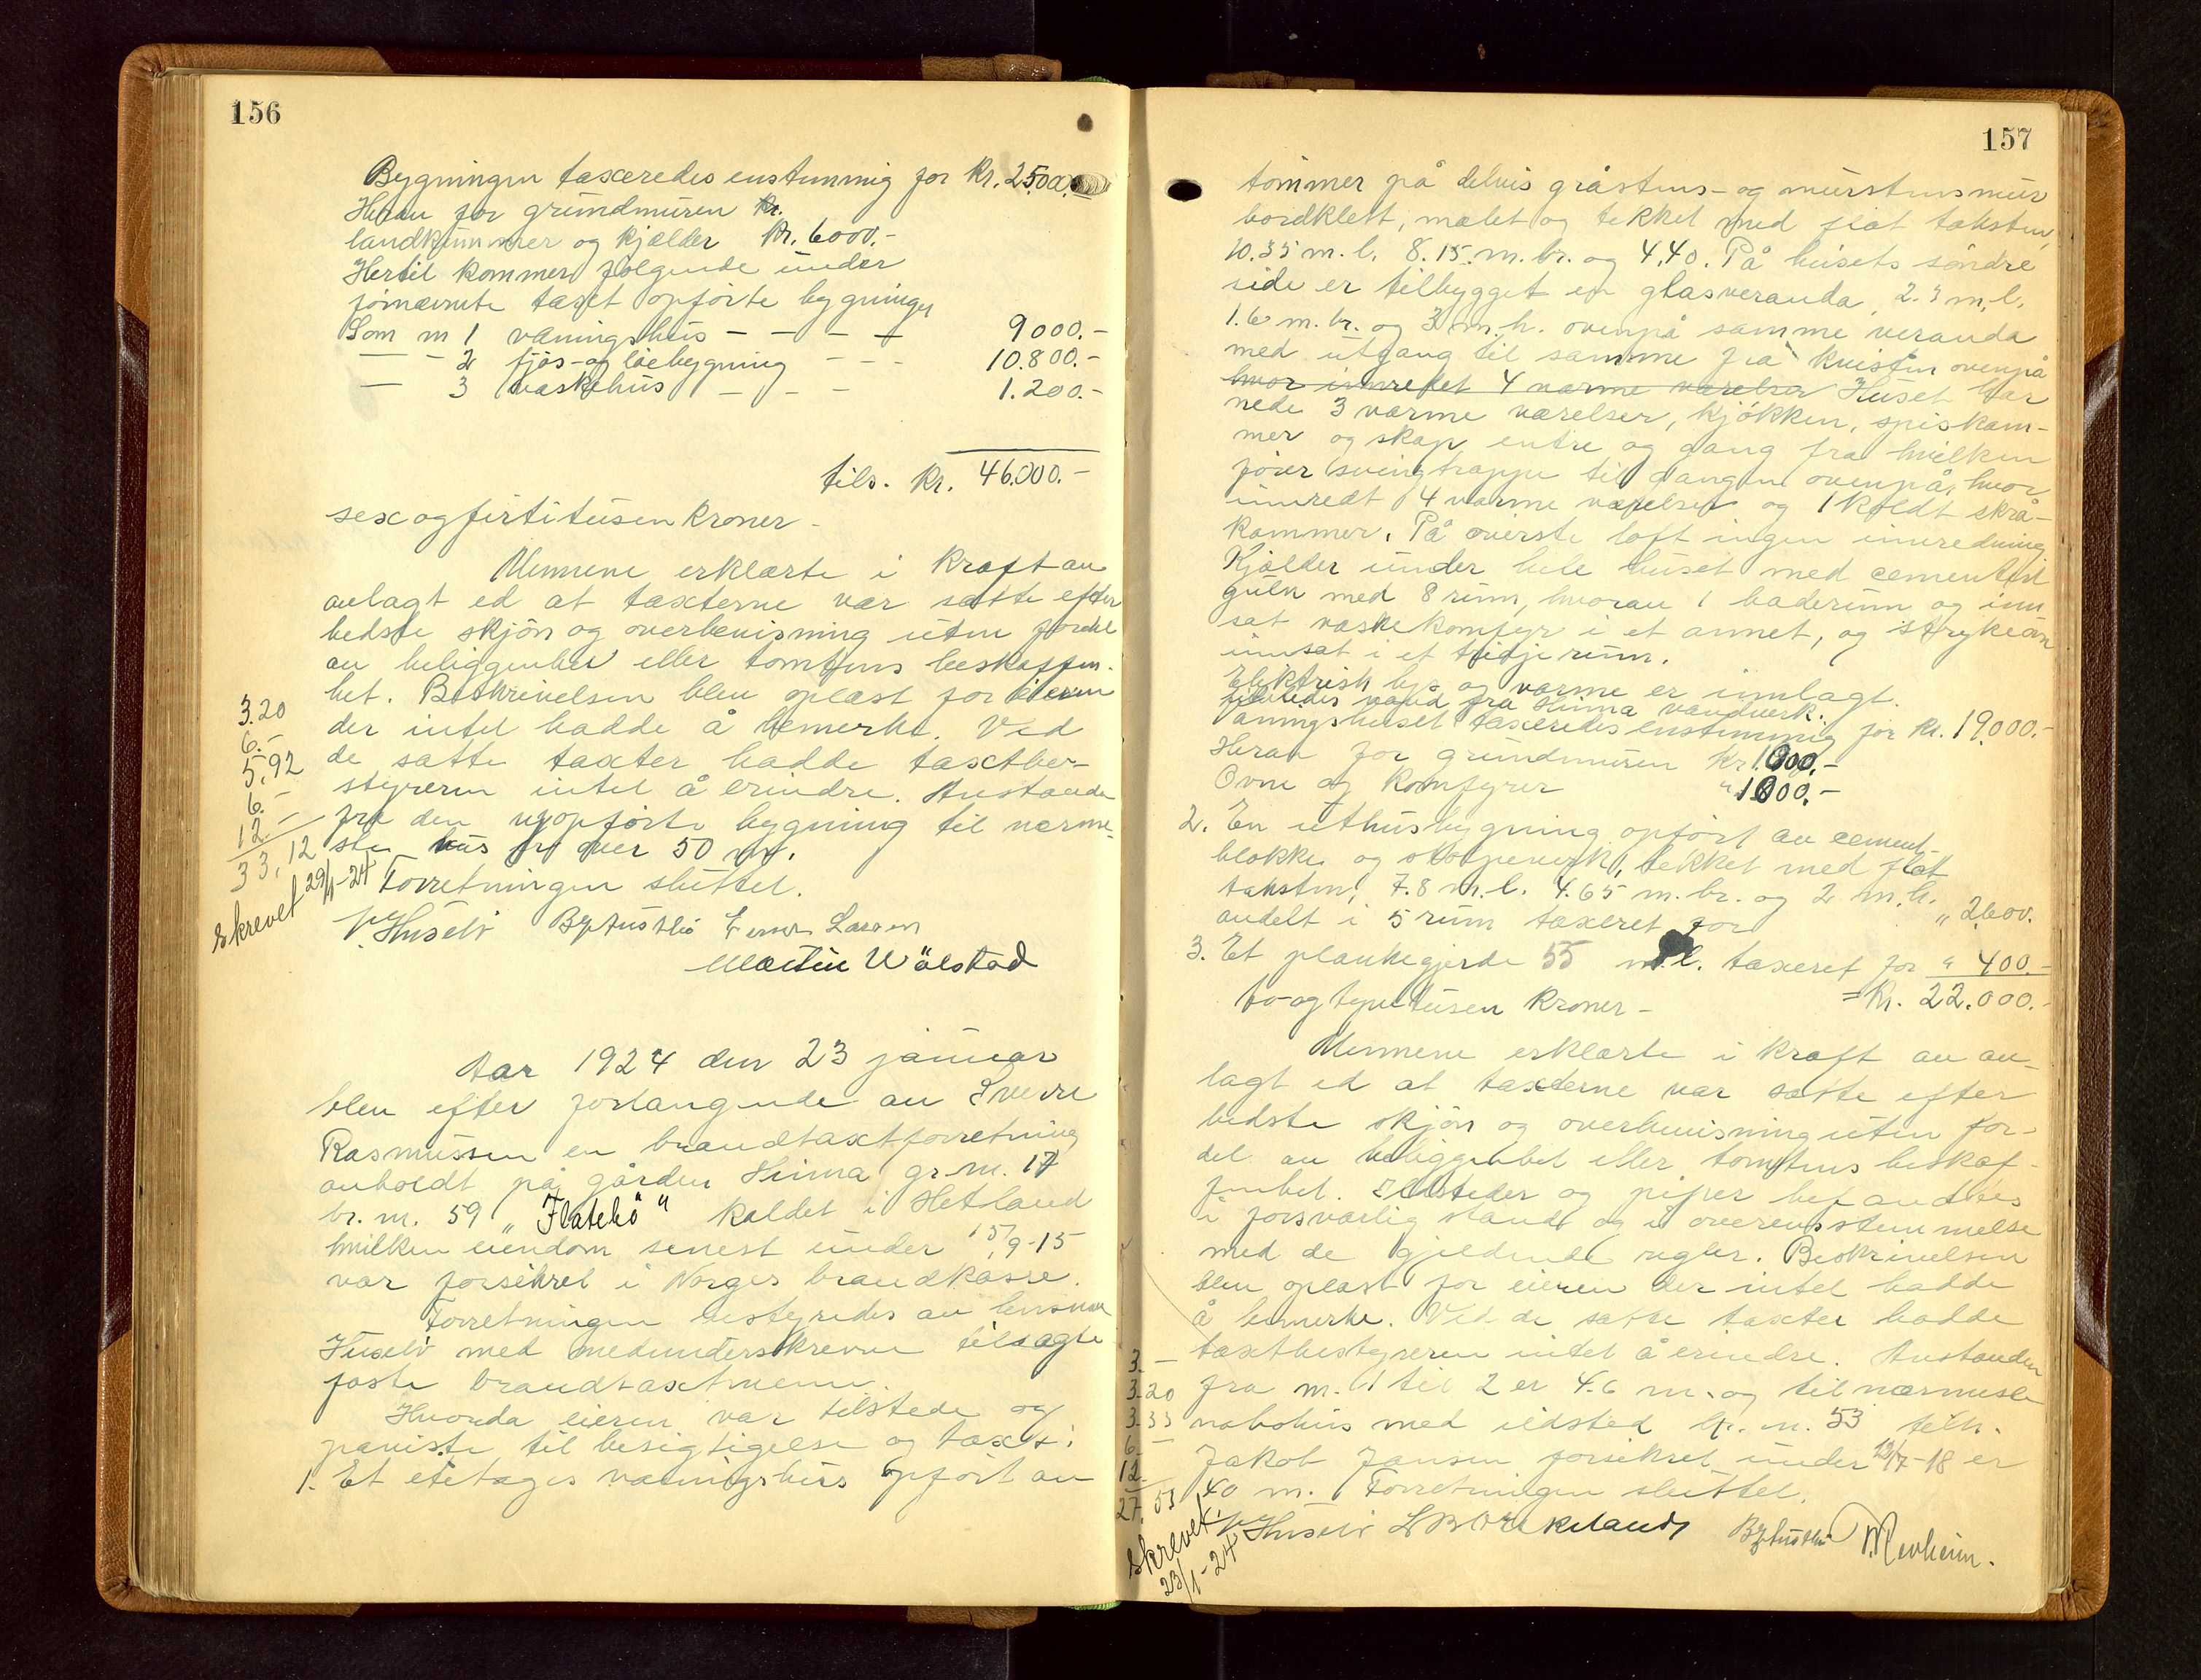 156
Bygningen taxeredes enstemmig for Kr. 25000.-
Herav for grundmuren Kr.
landkummer og kjælder Kr. 6000.-
Hertil kommer følgende under
førnævnte taxt opførte bygninger
Som nr 1 våningshus - - - - 9000.-
— - 2 fjøs- og løebygning - - - 10.800.-
— 3 vaskehus - - - 1.200.-
tils. Kr. 46.000.-
sex og firti tusen kroner -
Mennene erklærte i kraft av
avlagt ed at taxterne var satte efter
bedste skjøn og overbevisning uten fordel
av beliggenhet eller tomtens beskaffen-
het. Beskrivelsen blev oplæst for eieren
der intet hadde å bemerke. Ved
de satte taxter hadde taxtbe-
styreren intet å erindre. Avstanden
fra den nyopførte bygning til nærme-
ste hus er over 50 mr.
Forretningen sluttet.
3.20
6.-
5,92
6.-
12.-
33,12
Skrevet 29/1-24
Husebø Einar Larsen
Martin Wølstad
Aar 1924 den 23 januar
blev efter forlangende av Sverre
Rasmussen en brandtaxtforretning
avholdt på gården Hinna gr. nr. 17
br. nr. 59 „Flatebø" kaldet i Hetland
hvilken eiendom senest under 15/9-15
var forsikret i Norges brandkasse.
Forretningen bestyredes av lensman
Husebø med medunderskrevne tilsagte
faste brandtaxtmenn.
Hvorda eieren var tilstede og
paviste til besigtigelse og taxt:
1. Et etetages våningshus opført av
157
tømmer på delvis gråstens- og murstensmur
bordklett, malet og tekket med flat taksten,
10.35 m. l. 8.15. m. br. og 4,40. På husets søndre
side er tilbygget en glasveranda, 2.3 m. l.
1.6 m. br. og 3 m. h. ovenpå samme veranda
med utgang til samme fra kvisten ovenpå
hvor innredet 4 varme værelser Huset har
nede 3 varme værelser, kjøkken, spiskam-
mer og skap, entre og gang fra hvilken
fører svingtrappe til gangen ovenpå, hvor
innredt 4 varme værelser og 1 koldt skrå-
kammer. På øverste loft ingen innredning.
Kjælder under hele huset med cementert
gulv med 8 rum, hvorav 1 baderum og inn
sat vaskekomfyr i et annet, og strykeovn
innsat i et tredje rum.
Elektrisk lys og varme er innlagt.
likeledes vand fra Hinna vandverk.
Våningshuset taxeredes enstemmig for Kr. 19.000.-
Herav for grundmuren Kr. 1000.-
Ovne og komfyrer " 1000.-
2. En uthusbygning opført av cement-
blokke og stolpeverk, tekket med flat
taksten, 7.8 m. l. 4.65 m. br. og 2 m. h.
avdelt i 5 rum taxeret for „ 2600.
3. Et plankegjerde 55 m. l. taxeret for " 400.-
to-og tyvetusen kroner - = Kr. 22.000.-
Mennene erklærte i kraft av av-
lagt ed at taxterne var satte efter
bedste skjøn og overbevisning uten for-
del av beliggenhet eller tomtens beskaf-
fenhet. Ildsteder og piper befandtes
i forsvarlig stand og i overensstemmelse
med de gjeldende regler. Beskrivelsen
blev oplæst for eieren der intet hadde
å bemerke. Ved de satte taxter hadde
taxtbestyreren intet å erindre. Avstanden
fra nr. 1 til 2 er 4.6 m. og til nærmeste
nabohus med ildsted br. nr. 53 tilh.
Jakob Jansen forsikret under 12/7-18 er
40 m. Forretningen sluttet.
3.-
3.20
3.33
6.-
12.-
27,53
Skrevet
23/1-24
Husebø